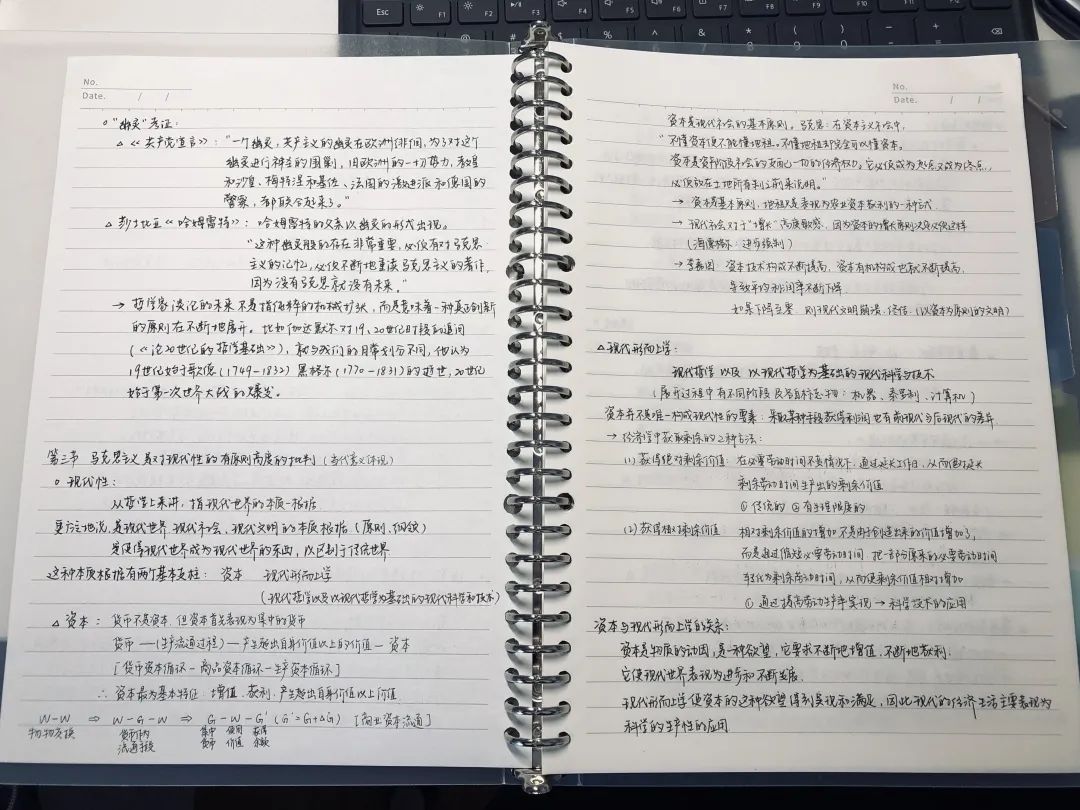 Esc
F1
F2
F3
F4
F5
F6
F7
F8
F9
F10
F11
F12
No.
Date. / /
"幽灵"考证:
△ 《共产党宣言》: "一个幽灵,共产主义的幽灵在欧洲徘徊,为了对这个
幽灵进行神圣的围剿,旧欧洲的一切势力,教皇
和沙皇、梅特涅和基佐、法国的激进派和德国的
警察,都联合起来了。"
△ 莎士比亚《哈姆雷特》: 哈姆雷特的父亲以幽灵的形式出现。
"这种幽灵般的存在非常重要,必须有对马克思
主义的记忆,必须不断地重读马克思主义的著作,
因为没有马克思就没有未来。"
→ 哲学家谈论的未来不是指倍率的机械扩张,而是意味着一种真正创新
的原则在不断地展开。比如伽达默尔对19、20世纪时段的追问
(《论20世纪的哲学基础》),就与我们的日常划分不同,他认为
19世纪始于歌德(1749-1832)黑格尔(1770-1831)的逝世,20世纪
始于第一次世界大战的爆发。
第三节 马克思主义是对现代性的有原则高度的批判(当代意义体现)
现代性:
从哲学上来讲,指现代世界的本质-根据
更广泛地说,是现代世界、现代社会、现代文明的本质根据(原则、纲领)
是使得现代世界成为现代世界的东西,以区别于传统世界
这种本质根据有两个基本支柱: 资本 现代形而上学
(现代哲学以及以现代哲学为基础的现代科学和技术)
△ 资本: 货币不是资本,但资本首先表现为集中的货币
货币 —(生产流通过程)— 产生超出自身价值以上的价值 - 资本
[货币资本循环 - 商品资本循环 - 生产资本循环]
∴ 资本最为基本特征: 增值、获利、产生超出自身价值以上价值
W-W ⇒ W-G-W ⇒ G-W-G' (G'=G+ΔG) [商业资本流通]
物物交换 货币作为 集中 使用 获得
流通手段 货币 价值 余额
No.
Date. / /
资本是现代社会的基本原则。马克思:在资本主义社会中,
"不懂资本便不能懂地租。不懂地租却完全可以懂资本。
资本是资产阶级社会的支配一切的经济权力。它必须成为起点又成为终点,
必须放在土地所有制之前来说明。"
→ 资本是基本原则,地租只是表现为农业资本获利的一种方式
→ 现代社会对于"增长"高度敏感,因为资本的增长原则决定必须这样
(海德格尔:进步强制)
→ 李嘉图: 资本技术构成不断提高,资本有机构成也就不断提高,
导致平均利润率不断下降
如果下降至零,则现代文明崩溃、终结(以资本为原则的文明)
△ 现代形而上学:
现代哲学以及以现代哲学为基础的现代科学与技术
(展开过程中有不同阶段及各自标志物: 机器、泰罗制、计算机)
资本并不是唯一构成现代性的要素: 采取某种手段获得利润也有前现代与后现代的差异
→ 经济学中获取剩余的2种方法:
(1) 获得绝对剩余价值: 在必要劳动时间不变情况下,通过延长工作日,从而绝对延长
剩余劳动时间生产出的剩余价值
① 传统的 ② 有生理限度的
(2) 获得相对剩余价值 相对剩余价值的增加不是由于创造出来的价值增加了,
而是通过缩短必要劳动时间,把一部分原来的必要劳动时间
转化为剩余劳动时间,从而使剩余价值相对增加
① 通过提高劳动生产率实现 → 科学技术的应用
资本与现代形而上学的关系:
资本是物质的动因,是一种欲望,它要求不断地增值,不断地获利。
它使现代世界表现为进步和不断发展。
现代形而上学使资本的这种欲望得到实现和满足,因此现代的经济生活主要表现为
科学的生产性的应用